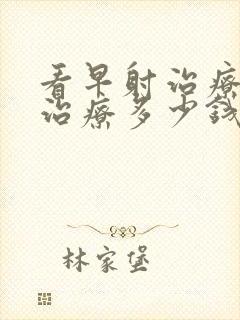 看早射治療
治療多少錢
林家堡